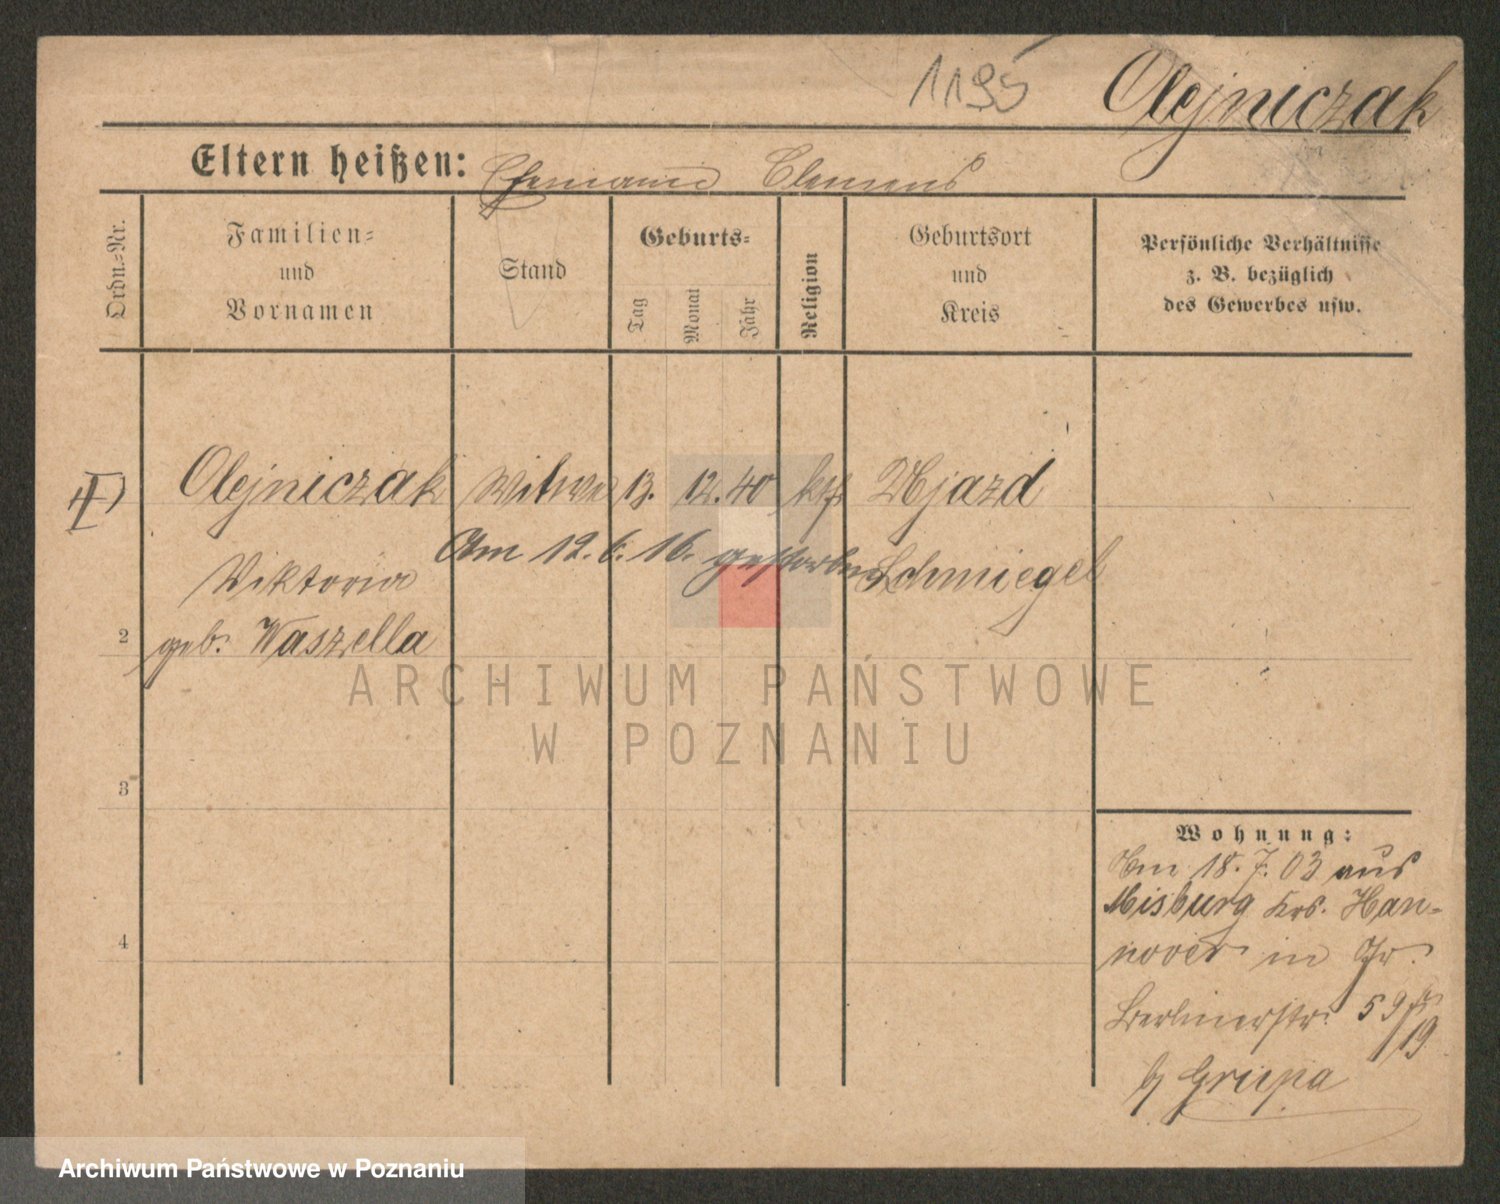 1195 Olejniczak
Eltern heißen: Ehemann Clemens
Ordn.-Nr.
Familien-
und
Vornamen
Stand
Geburts-
Tag
Monat
Jahr
Religion
Geburtsort
und
Kreis
Persönliche Verhältnisse
z. B. bezüglich
des Gewerbes usw.
Olejniczak Witwe 13. 12. 40 kth Ujazd
Am 12. 6. 16. gestorben Schmiegel
Viktoria
2 geb. Waszella
ARCHIWUM PAŃSTWOWE
W POZNANIU
3
4
Wohnung:
Am 18. 7. 03 aus
Misburg Krs. Han-
nover in
Berlinerstr. 59
19
b/ Grupa
Archiwum Państwowe w Poznaniu